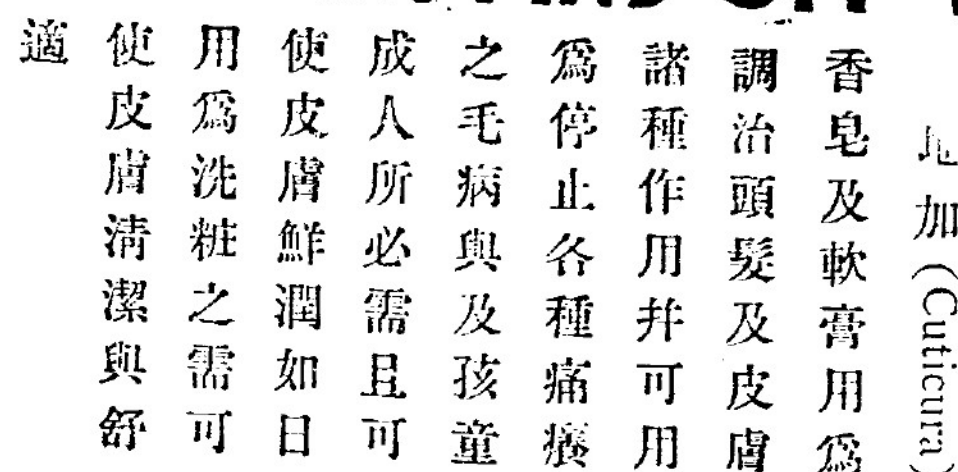 地加(Cuticura)
香皂及軟膏用爲
調治頭髮及皮膚
諸種作用幷可用
爲停止各種痛癢
之毛病與及孩童
成人所必需且可
使皮膚鮮潤如日
用爲洗粧之需可
使皮膚清潔與舒
適